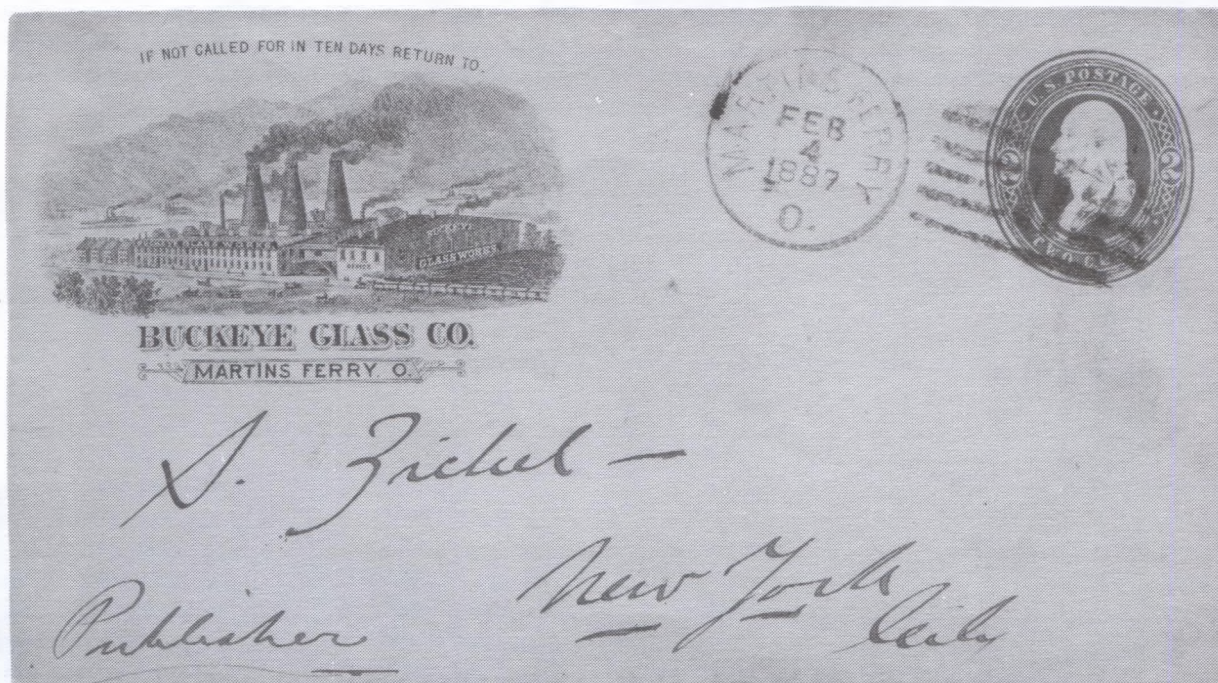 IF NOT CALLED FOR IN TEN DAYS RETURN TO.
BUCKEYE
GLASS WORKS
OFFICE
BUCKEYE GLASS CO.
MARTINS FERRY. O.
MARTINS FERRY
FEB
4
1887
O.
U.S. POSTAGE
2 2
S. Zickel —
New York
City
Publisher